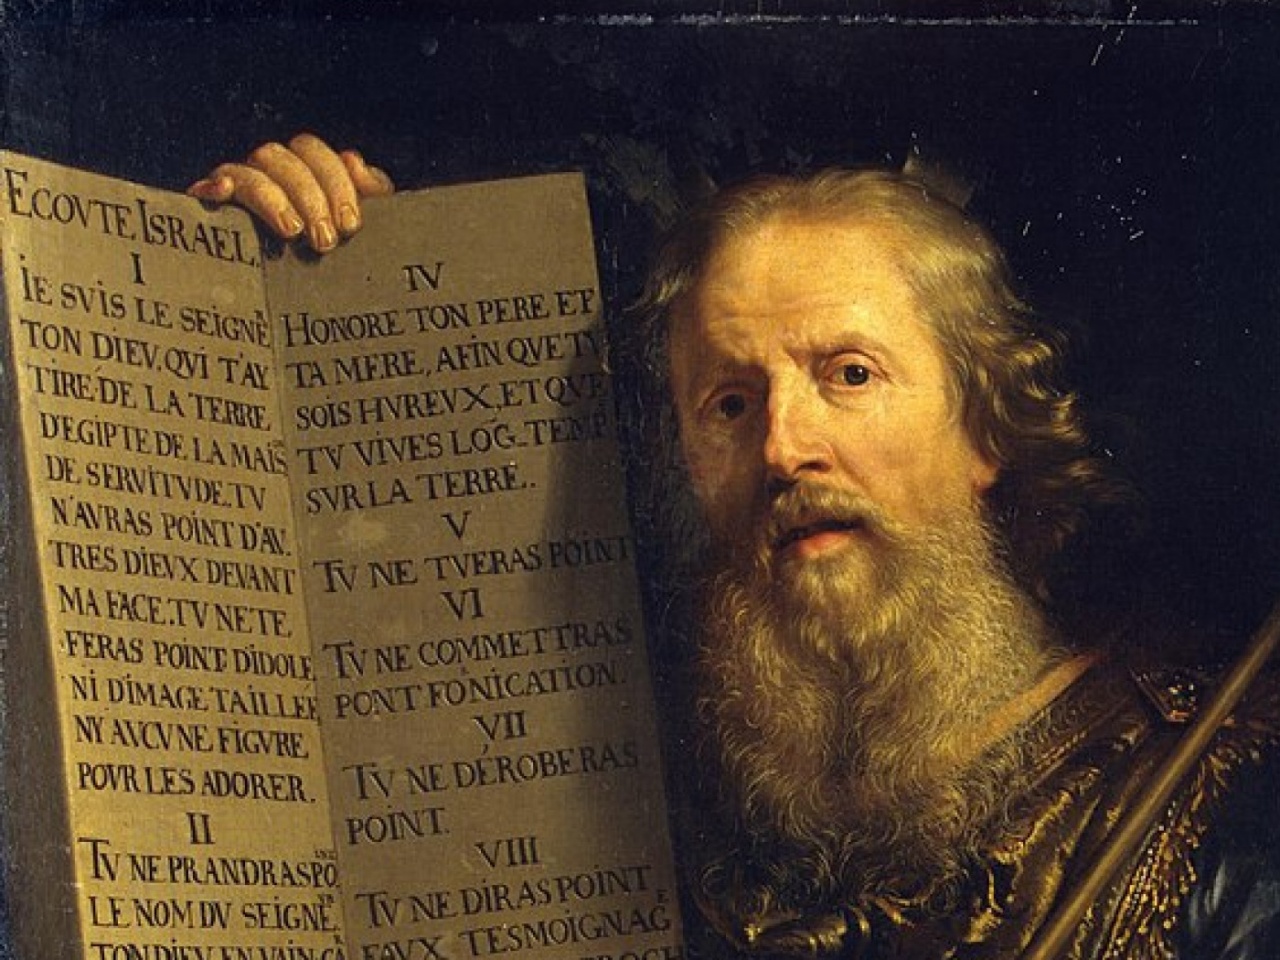 ECOVTE ISRAEL.
I
IE SVIS LE SEIGNR
TON DIEV. QVI T'AY
TIRE DE LA TERRE
D'EGIPTE DE LA MAISON
DE SERVITVDE. TV
N'AVRAS POINT D'AV.
TRES DIEVX DEVANT
MA FACE. TV NE TE
FERAS POINT DIDOLE
NI DIMAGE TAILLEE
NY AVCVNE FIGVRE
POVR LES ADORER.
II
TV NE PRANDRAS POINT
LE NOM DV SEIGNR
TON DIEV EN VAIN. CAR
IV
HONORE TON PERE ET
TA MERE, AFIN QVE TV
SOIS HVREVX, ET QVE
TV VIVES LOG-TEMP
SVR LA TERRE.
V
TV NE TVERAS POINT
VI
TV NE COMMETTRAS
PONT FONICATION.
VII
TV NE DÉROBERAS
POINT.
VIII
TV NE DIRAS POINT
FAVX TESMOIGNAGE